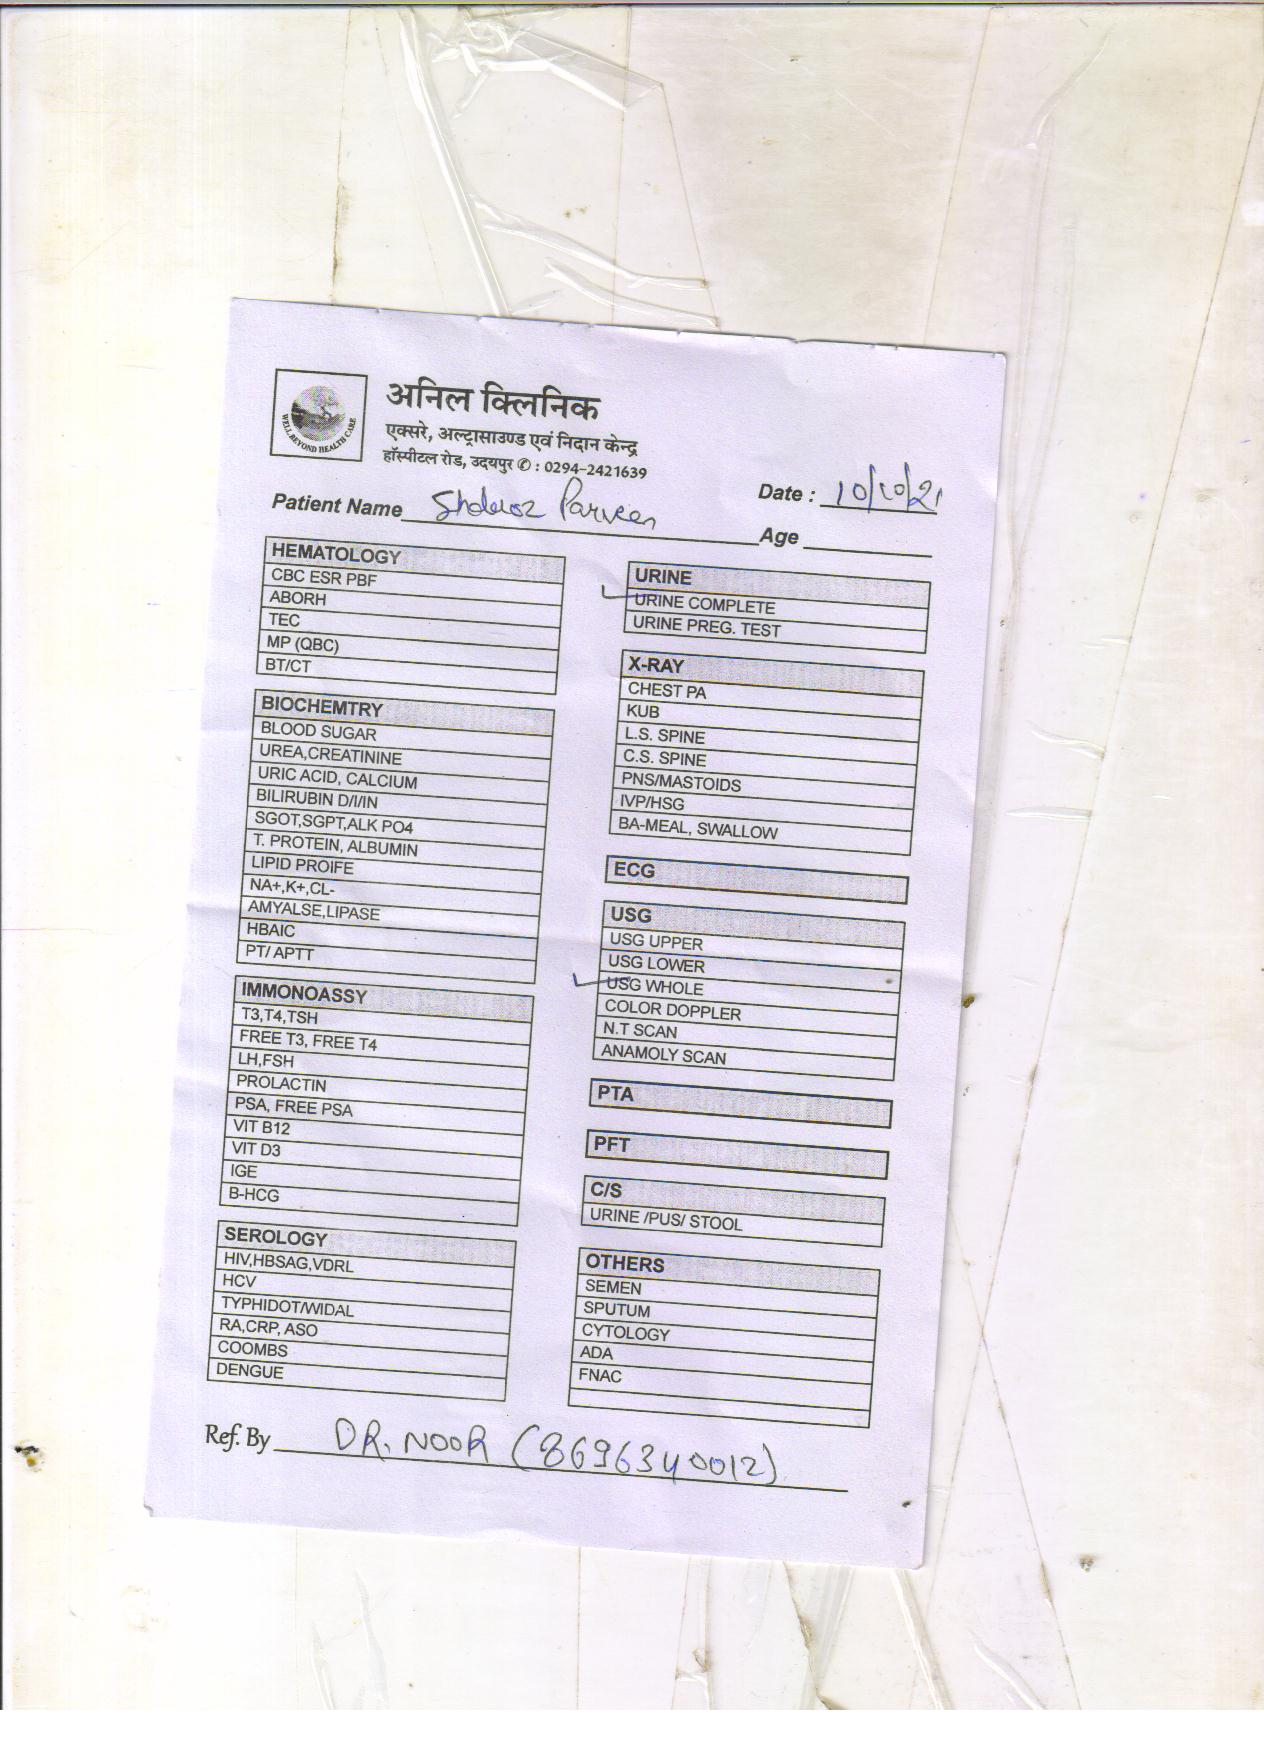 अनिल क्लिनिक
एक्सरे, अल्ट्रासाउण्ड एवं निदान केन्द्र
हॉस्पीटल रोड, उदयपुर ✆ : 0294-2421639
WELL BEYOND HEALTH CARE
Date : 10/10/21
Patient Name Parveen
Age
HEMATOLOGY
CBC ESR PBF
ABORH
TEC
MP (QBC)
BT/CT
BIOCHEMTRY
BLOOD SUGAR
UREA,CREATININE
URIC ACID, CALCIUM
BILIRUBIN D/I/IN
SGOT,SGPT,ALK PO4
T. PROTEIN, ALBUMIN
LIPID PROIFE
NA+,K+,CL-
AMYALSE,LIPASE
HBAIC
PT/ APTT
IMMONOASSY
T3,T4,TSH
FREE T3, FREE T4
LH,FSH
PROLACTIN
PSA, FREE PSA
VIT B12
VIT D3
IGE
B-HCG
SEROLOGY
HIV,HBSAG,VDRL
HCV
TYPHIDOT/WIDAL
RA,CRP, ASO
COOMBS
DENGUE
URINE
URINE COMPLETE
URINE PREG. TEST
X-RAY
CHEST PA
KUB
L.S. SPINE
C.S. SPINE
PNS/MASTOIDS
IVP/HSG
BA-MEAL, SWALLOW
ECG
USG
USG UPPER
USG LOWER
USG WHOLE
COLOR DOPPLER
N.T SCAN
ANAMOLY SCAN
PTA
PFT
C/S
URINE /PUS/ STOOL
OTHERS
SEMEN
SPUTUM
CYTOLOGY
ADA
FNAC
Ref. By DR. NOOR (8696340012)